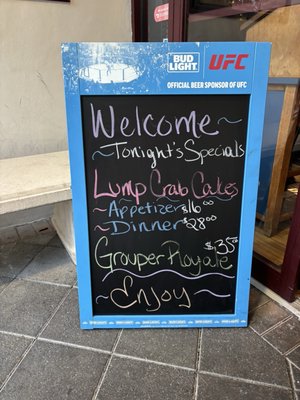 BUD LIGHT UFC
OFFICIAL BEER SPONSOR OF UFC
Welcome~
~Tonight's Specials
Lump Crab Cakes
~Appetizer $16.00
~Dinner $28.00
$35.00
Grouper Royale
~Enjoy~